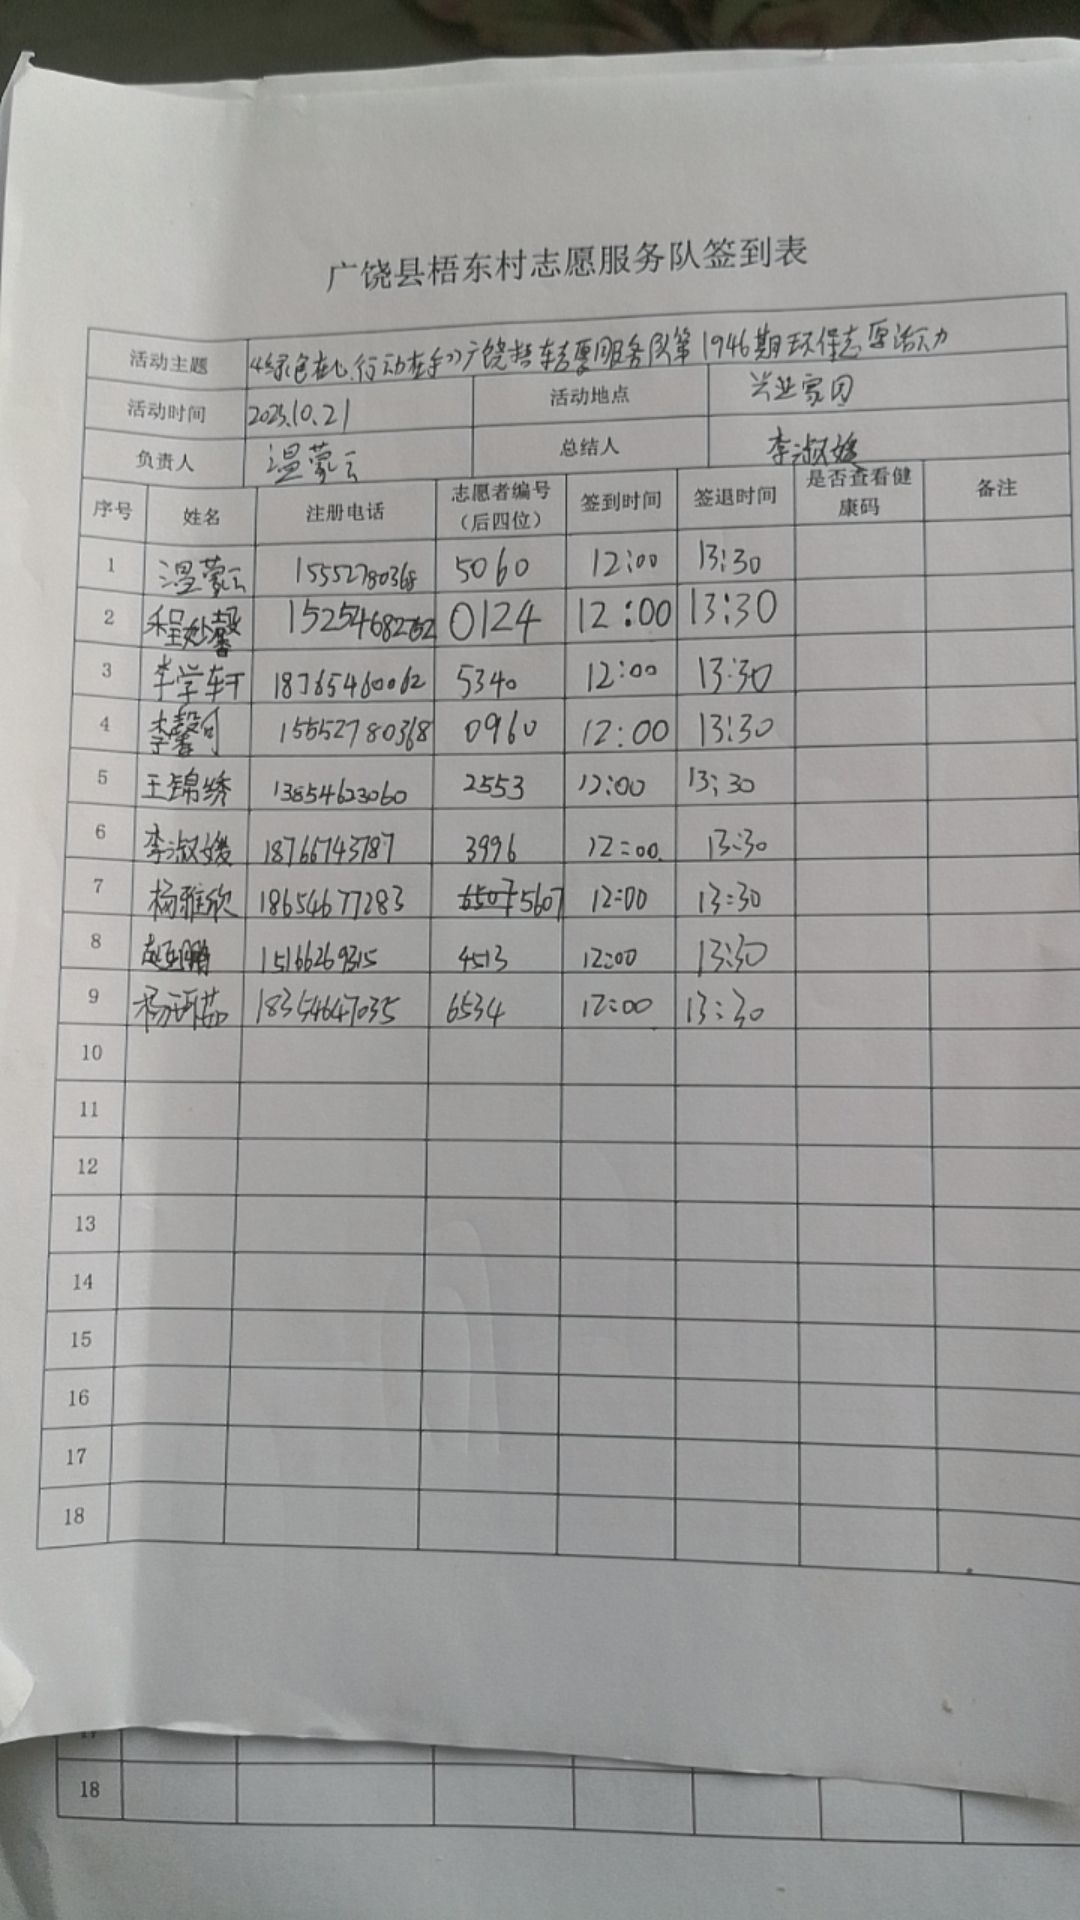 广饶县梧东村志愿服务队签到表
活动主题 《绿色在心,行动在手》广饶梧东志愿服务队第1946期环保志愿活动
活动时间 2023.10.21 活动地点 兴业家园
负责人 温蒙云 总结人 李淑媛
序号 姓名 注册电话 志愿者编号（后四位） 签到时间 签退时间 是否查看健康码 备注
1 温蒙云 15552780368 5060 12:00 13:30
2 程 馨 0124 12:00 13:30
3 李学轩 18765460062 5340 12:00 13:30
4 李馨可 15552780368 0960 12:00 13:30
5 王锦绣 13854623060 2553 12:00 13:30
6 李淑媛 18766743787 3996 12:00 13:30
7 杨雅欣 18654677283 6507 5607 12:00 13:30
8 赵 鹏 15166269315 4513 12:00 13:30
9 杨珂茹 18354647035 6534 12:00 13:30
10
11
12
13
14
15
16
17
18
18